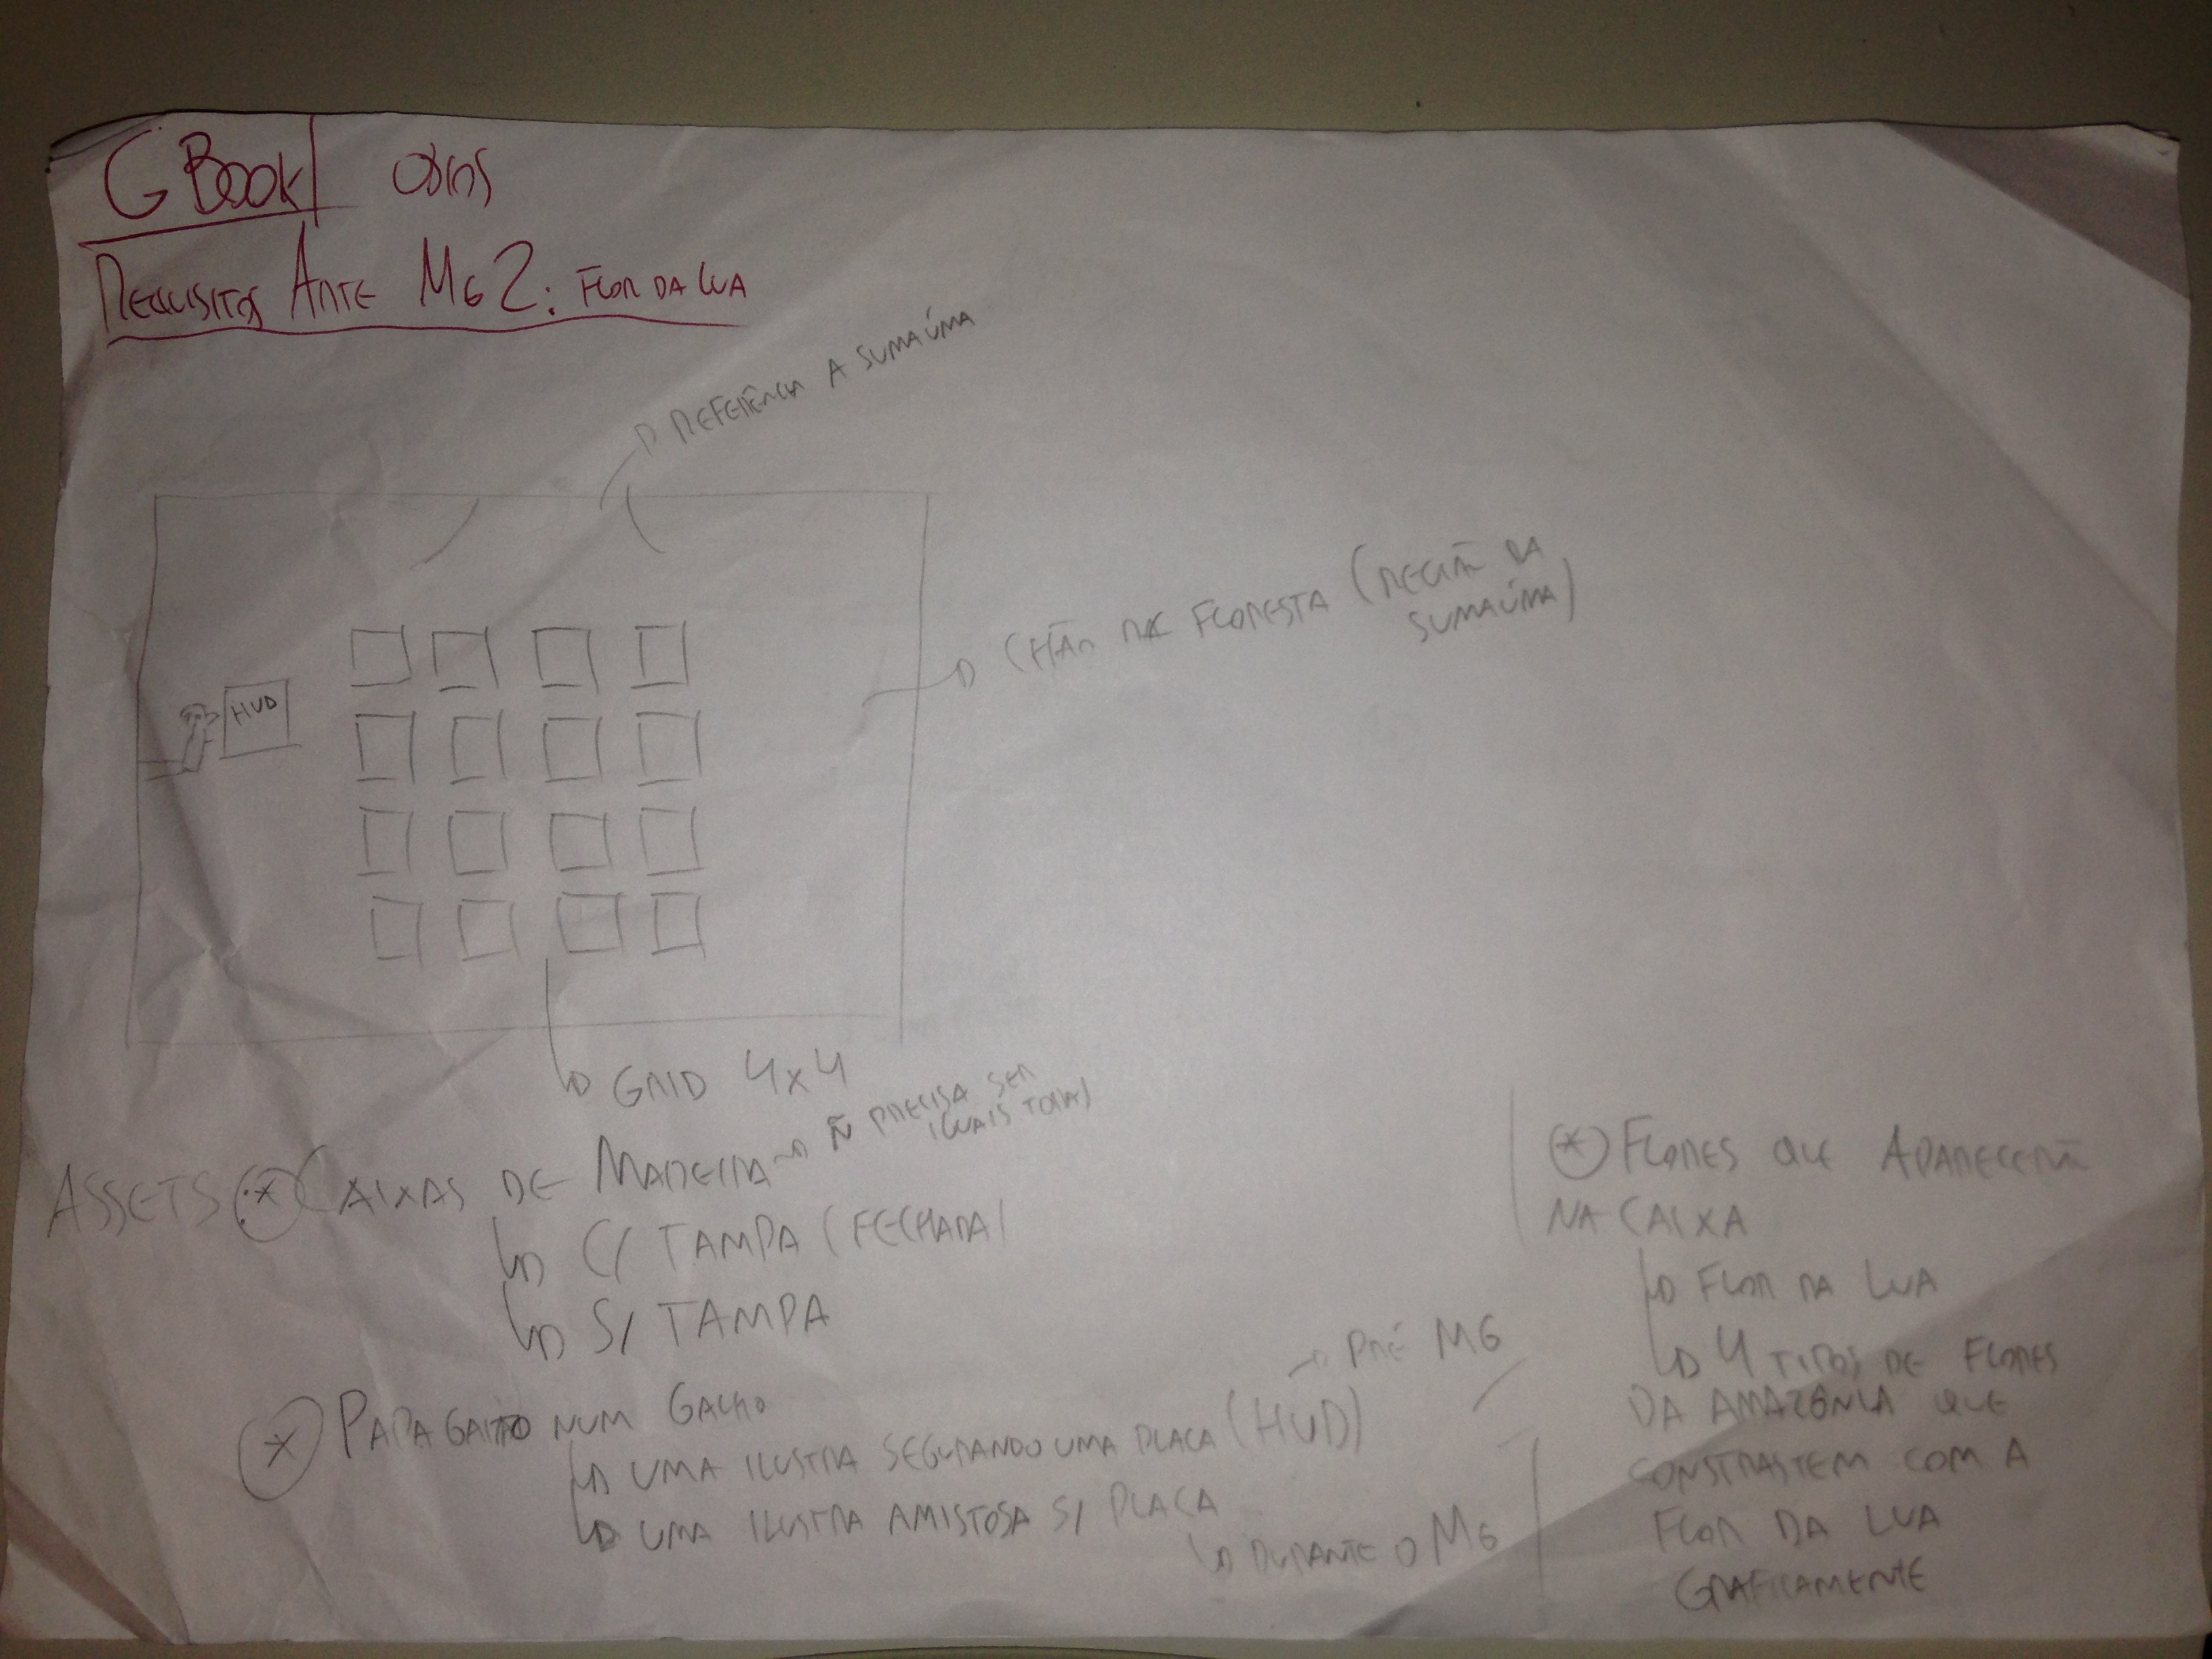 GBook
REQUISITOS ARTE MG2: FLOR DA LUA
REFERÊNCIA A SUMAÚMA
HUD
CHÃO DA FLORESTA (REGIÃO DA SUMAÚMA)
GRID 4x4
ASSETS:
* CAIXAS DE MADEIRA → Ñ PRECISA SER IGUAIS TODAS
C/ TAMPA (FECHADA)
S/ TAMPA
* PAPAGAIO NUM GALHO
UMA ILUSTRA SEGURANDO UMA PLACA (HUD)
→ PRÉ MG
UMA ILUSTRA AMISTOSA S/ PLACA
DURANTE O MG
* FLORES QUE APARECERÃ
NA CAIXA
FLOR DA LUA
4 TIPOS DE FLORES
DA AMAZÔNIA QUE
CONSTRASTEM COM A
FLOR DA LUA
GRAFICAMENTE